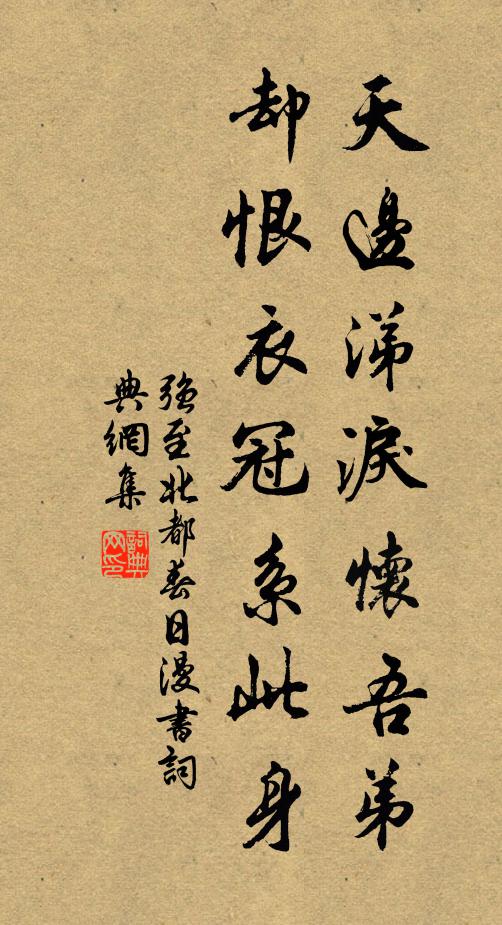 天邊涕淚懷吾弟
却恨衣冠系此身
強至北都春日漫書詞
典網集
詞典
网印